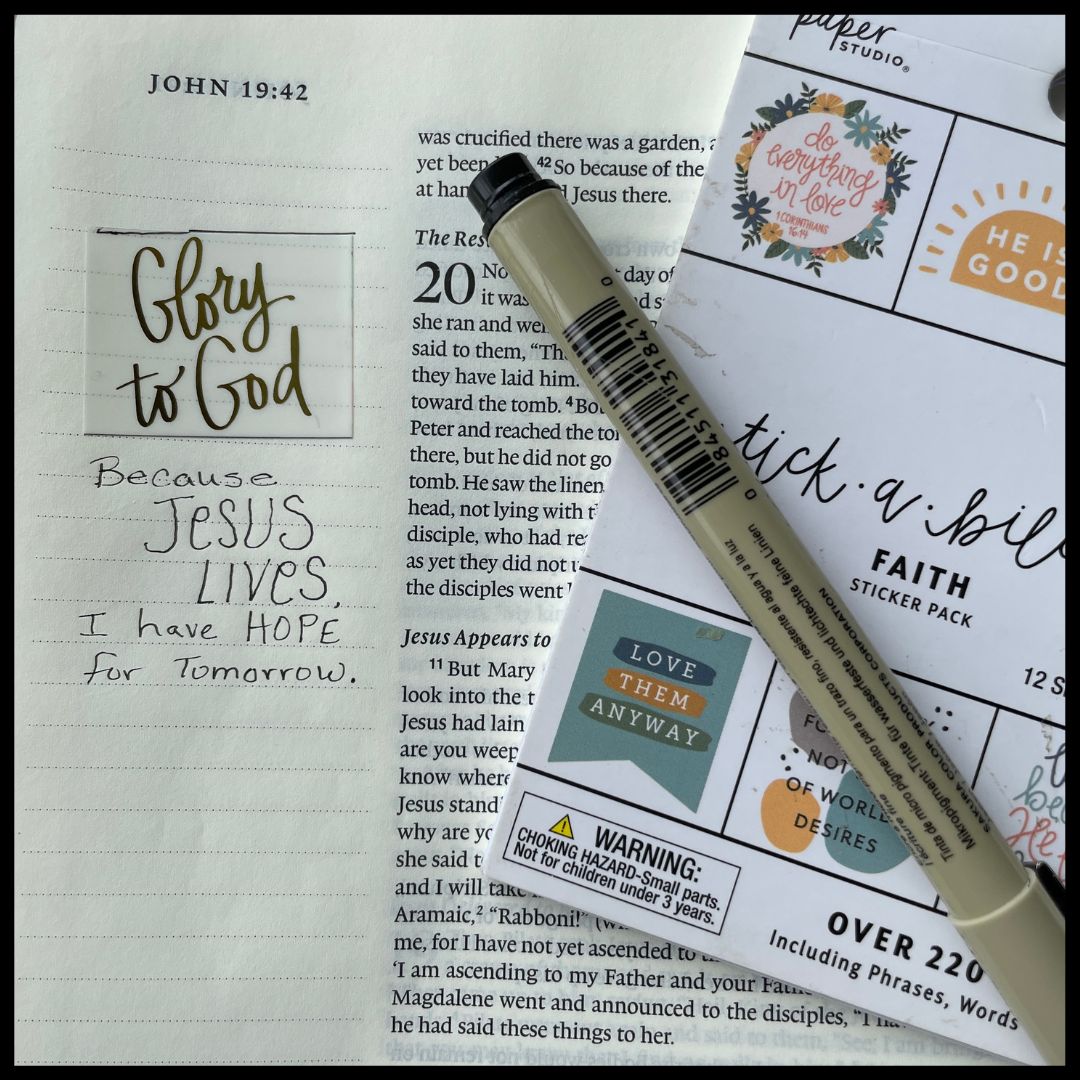 JOHN 19:42
Glory
to God
Because
JESUS
LIVES,
I have HOPE
for Tomorrow.
was crucified there was a garden,
yet been 42 So because of the
at Jesus there.
The
20 No day of
it was
she ran and
said to them,
they have laid him.
toward the tomb. 4
Peter and reached the
there, but he did not go
tomb. He saw the linen
head, not lying with
disciple, who had
as yet they did not
the disciples went
Jesus Appears to
11 But Mary
look into the
Jesus had lain
are you
know where
Jesus
why are
she said
and I will take
Aramaic,2 “Rabboni!”
me, for I have not yet ascended to
‘I am ascending to my Father and your
Magdalene went and announced to the disciples, “I
he had said these things to her.
paper
STUDIO®
do
everything
in love
1 CORINTHIANS
16:14
HE IS
GOOD
FAITH
STICKER PACK
LOVE
THEM
ANYWAY
NOT
OF WORLD
DESIRES
WARNING:
CHOKING HAZARD-Small parts.
Not for children under 3 years.
OVER 220
Including Phrases, Words
0 84511 31841 0
Tinta de micro pigmento para un trazo fino, resistente al agua y a la luz
Mikropigment-Tinte für wasserfeste und lichtechte feine Linien
SAKURA COLOR PRODUCTS CORPORATION